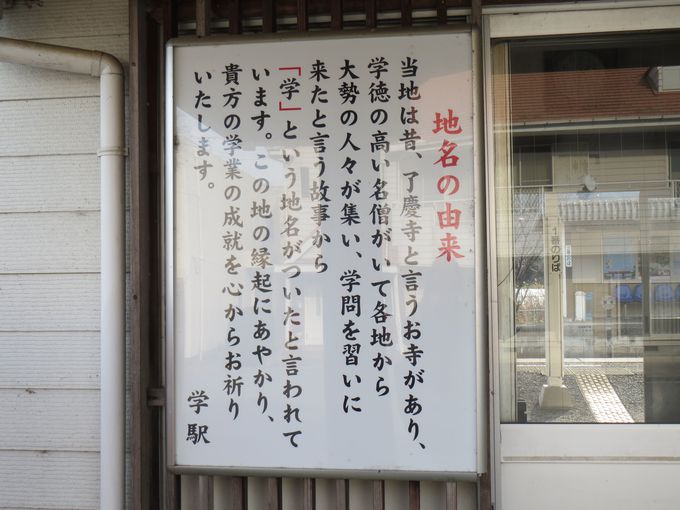 地名の由来
当地は昔、了慶寺と言うお寺があり、
学徳の高い名僧がいて各地から
大勢の人々が集い、学問を習いに
来たと言う故事から
「学」という地名がついたと言われて
います。この地の縁起にあやかり、
貴方の学業の成就を心からお祈り
いたします。
学駅
1番のりば